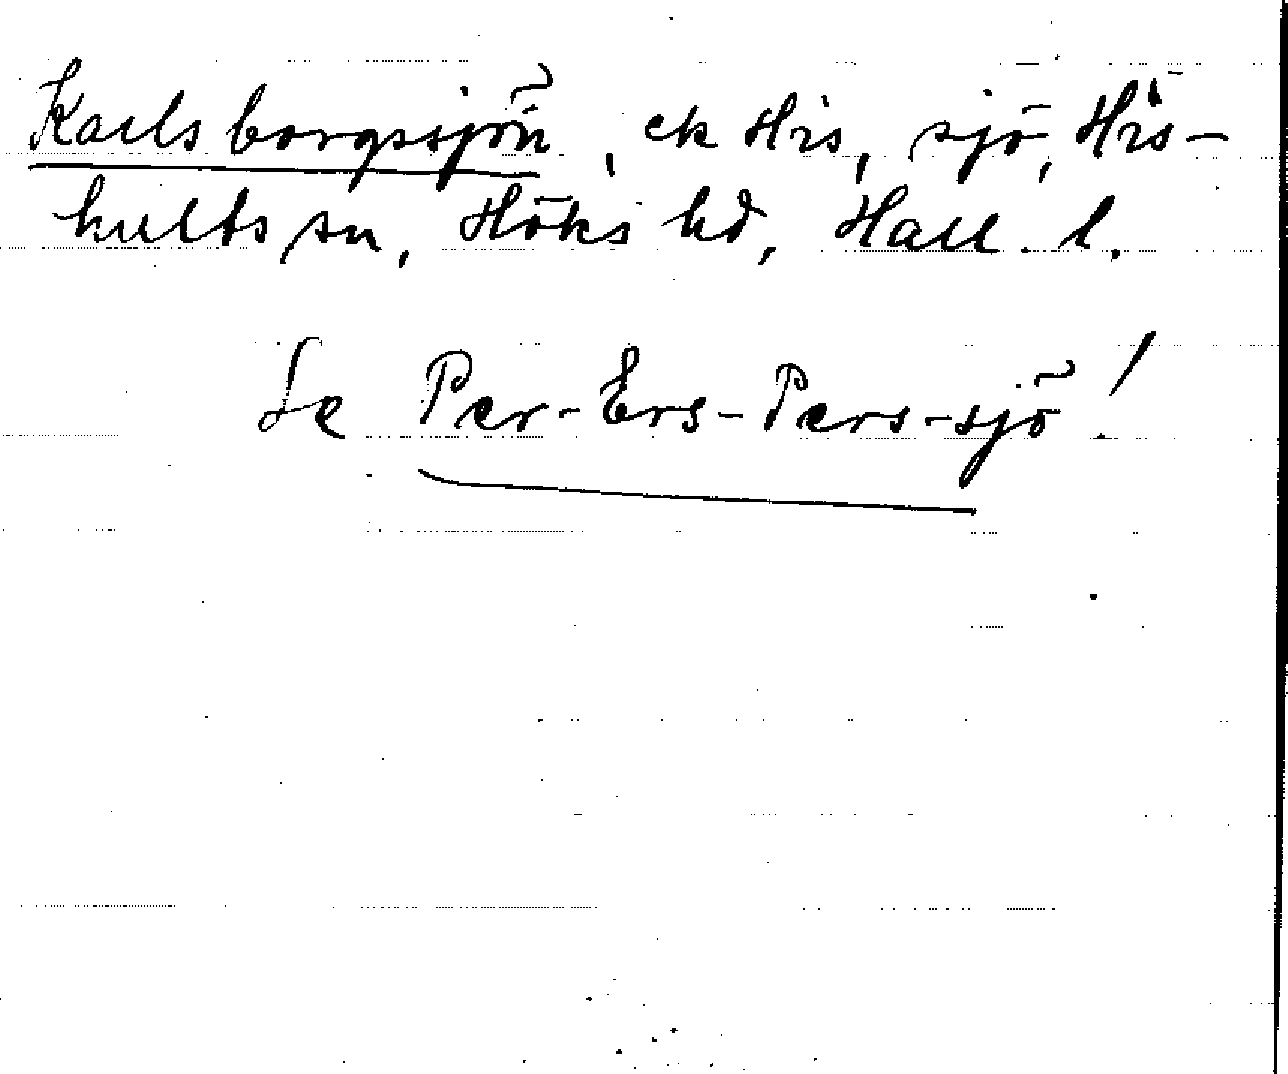 Karlsborgssjön, ek His, sjö, His-
hults sn, Höks hd, Hall. l.
Se Per-Ers-Pers-sjö!